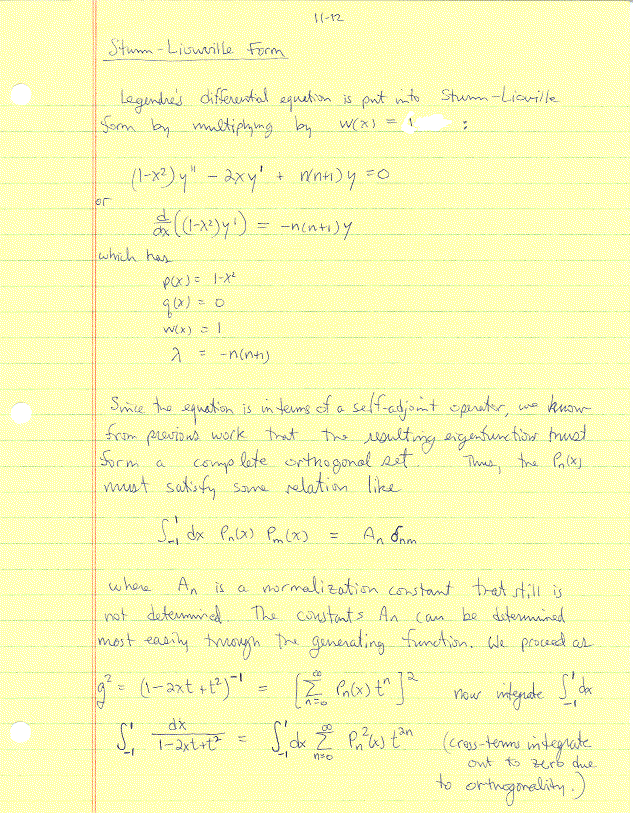 11-12
Sturm-Liouville Form
Legendre's differential equation is put into Sturm-Liouville
form by multiplying by w(x) = 1 :
(1-x²)y'' - 2xy' + n(n+1)y = 0
or
d/dx((1-x²)y') = -n(n+1)y
which has
p(x) = 1-x²
q(x) = 0
w(x) = 1
λ = -n(n+1)
Since the equation is in terms of a self-adjoint operator, we know
from previous work that the resulting eigenfunctions must
form a complete orthogonal set. Thus, the Pn(x)
must satisfy some relation like
∫₋₁¹ dx Pn(x) Pm(x) = An δnm
where An is a normalization constant that still is
not determined. The constants An can be determined
most easily through the generating function. We proceed as
g² = (1-2xt+t²)⁻¹ = [∑_{n=0}^∞ Pn(x)tⁿ]² now integrate ∫₋₁¹ dx
∫₋₁¹ dx/(1-2xt+t²) = ∫₋₁¹ dx ∑_{n=0}^∞ Pn²(x) t²ⁿ (cross-terms integrate
out to zero due
to orthogonality.)